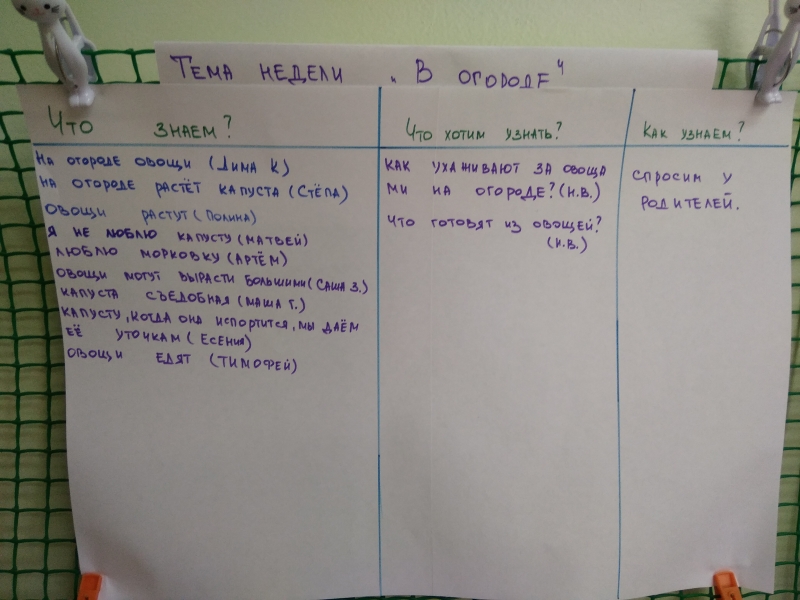 Тема недели „В огороде"
Что знаем?
На огороде овощи (Дима К)
На огороде растёт капуста (Стёпа)
Овощи растут (Полина)
Я не люблю капусту (Матвей)
Люблю морковку (Артём)
Овощи могут вырасти большими (Саша З.)
Капуста съедобная (Маша Г.)
Капусту, когда она испортится, мы даём
её уточкам (Есения)
Овощи едят (Тимофей)
Что хотим узнать?
Как ухаживают за овоща
ми на огороде? (Н.В.)
Что готовят из овощей?
(Н.В.)
Как узнаем?
Спросим у
родителей.